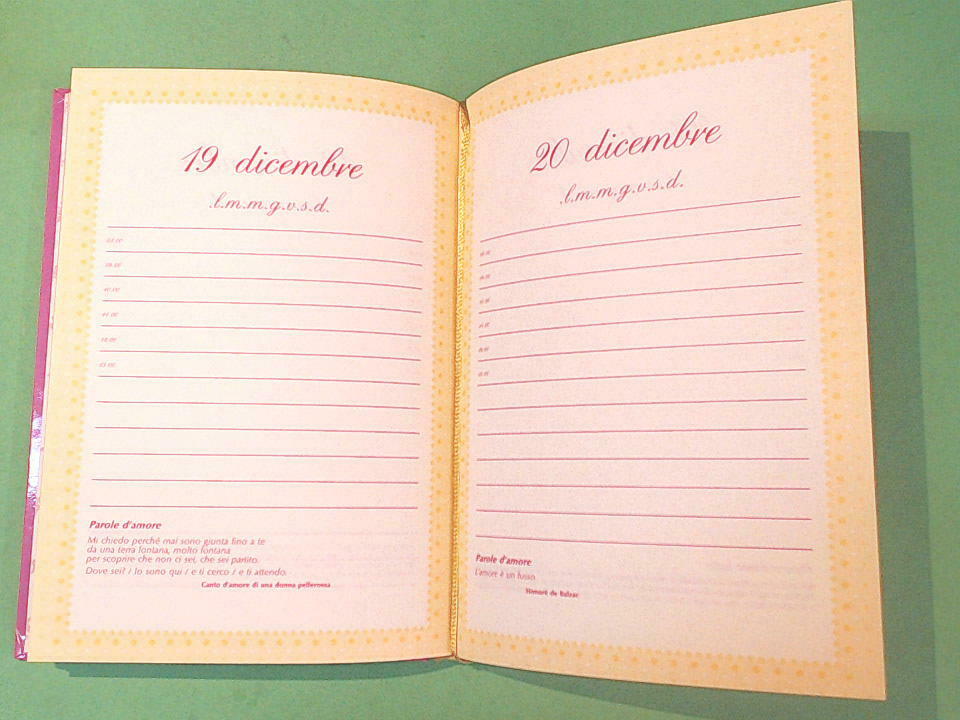 19 dicembre
.l.m.m.g.v.s.d.
Parole d'amore
Mi chiedo perché mai sono giunta fino a te
da una terra lontana, molto lontana
per scoprire che non ci sei, che sei partito.
Dove sei? / Io sono qui / e ti cerco / e ti attendo.
Canto d'amore di una donna pellerossa
20 dicembre
.l.m.m.g.v.s.d.
Parole d'amore
L'amore è un lusso.
Honoré de Balzac